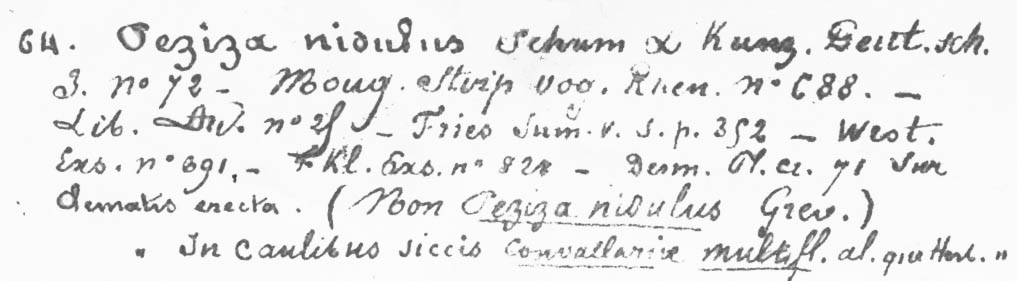 64. Peziza nidulus Schum & Kunz. Deut. sch.
3. no 72 - Moug. Stirp vog. Rhen. no 688. -
Lib. no 25 - Fries Sum. v. s. p. 352 - West.
Exs. no 391, - Kl. Exs. no 828 - Desm. Pl. cr. 71 Sur
Clematis erecta. (Non Peziza nidulus Grev.)
" In caulibus siccis convallariæ multifl. al. que Herb. "